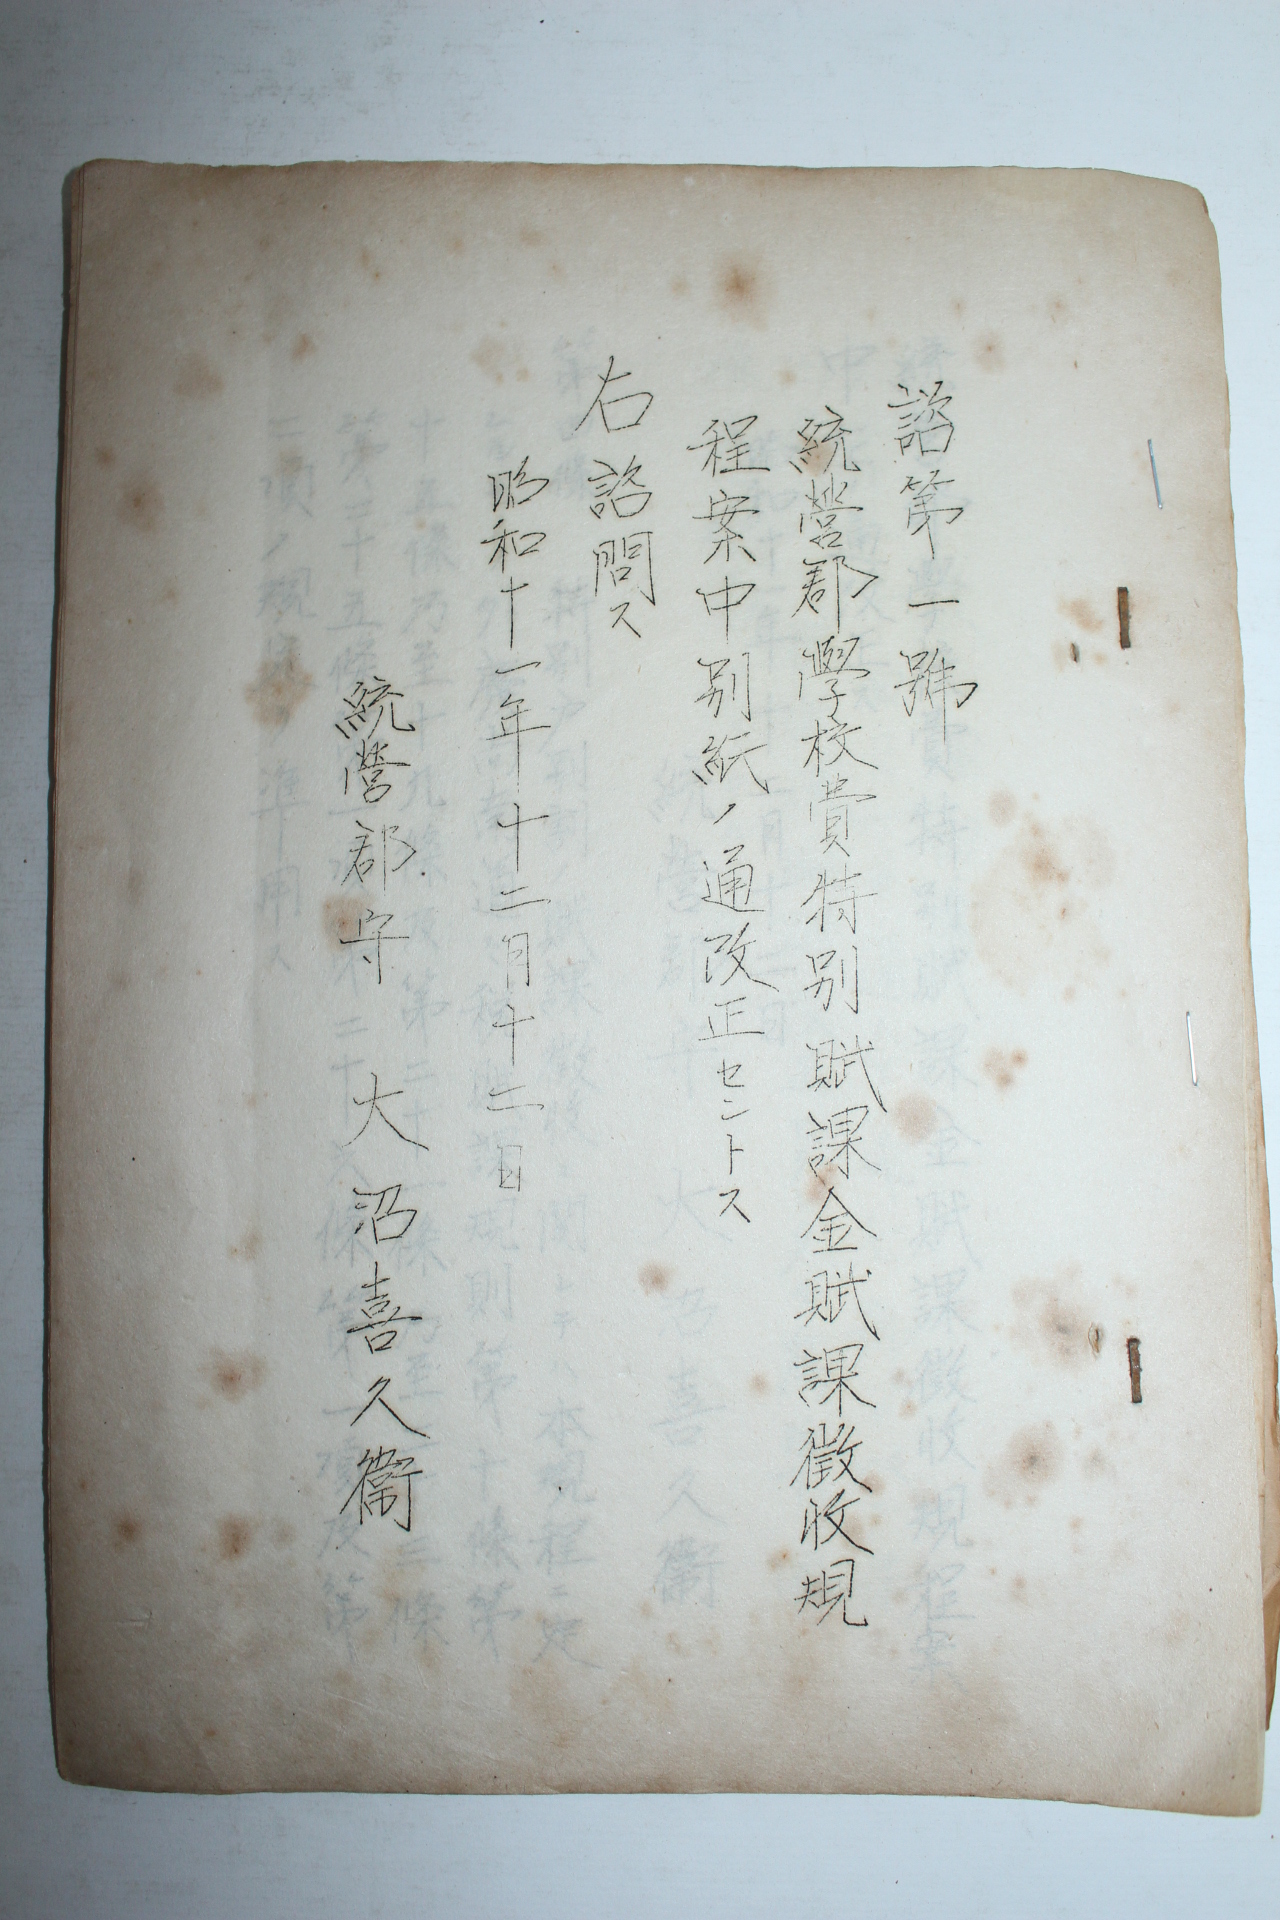 諮第一號
統營郡學校費特別賦課金賦課徵收規
程案中別紙ノ通改正セントス
右諮問ス
昭和十一年十二月十二日
統營郡守 大沼喜久衞